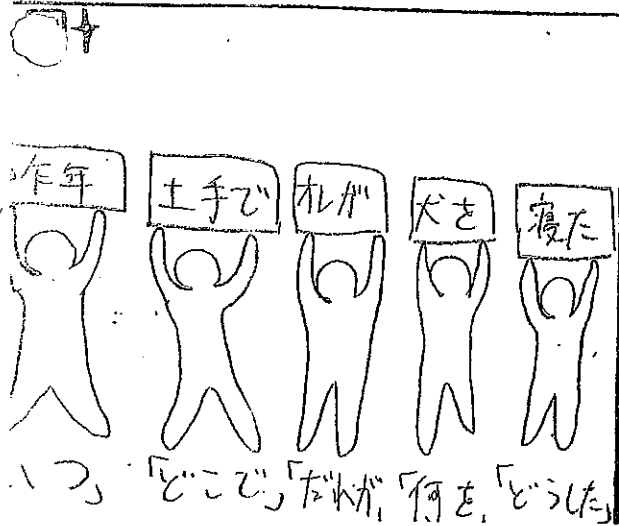 昨年 土手で オレが 犬を 寝た
いつ」 「どこで」 「だれが」 「何を」 「どうした」